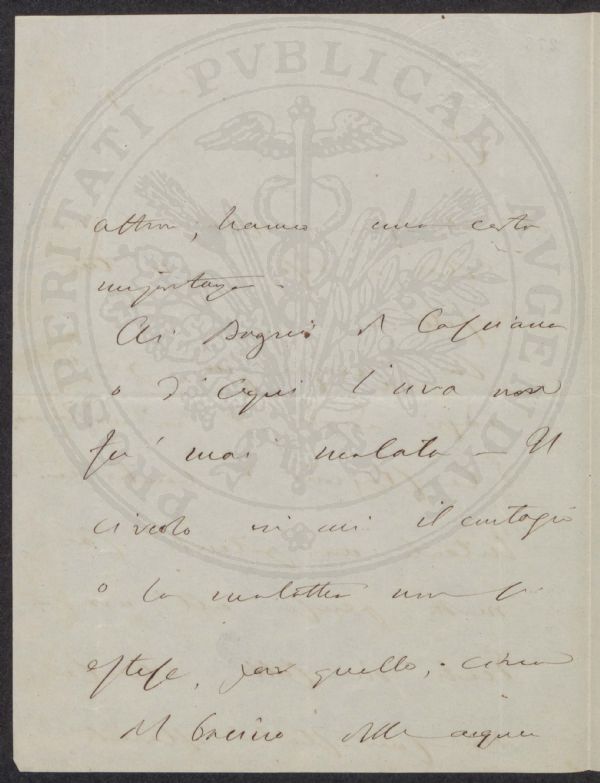 PROSPERITATI PVBLICAE AVGENDAE
altrove, hanno una certa
importanza.
Ai Bagni di Casciana
o di Aqui l'uva non
fu mai malata - Il
circolo in cui il contagio
o la malattia non si
estese, per quello, circa
al bacino delle acque